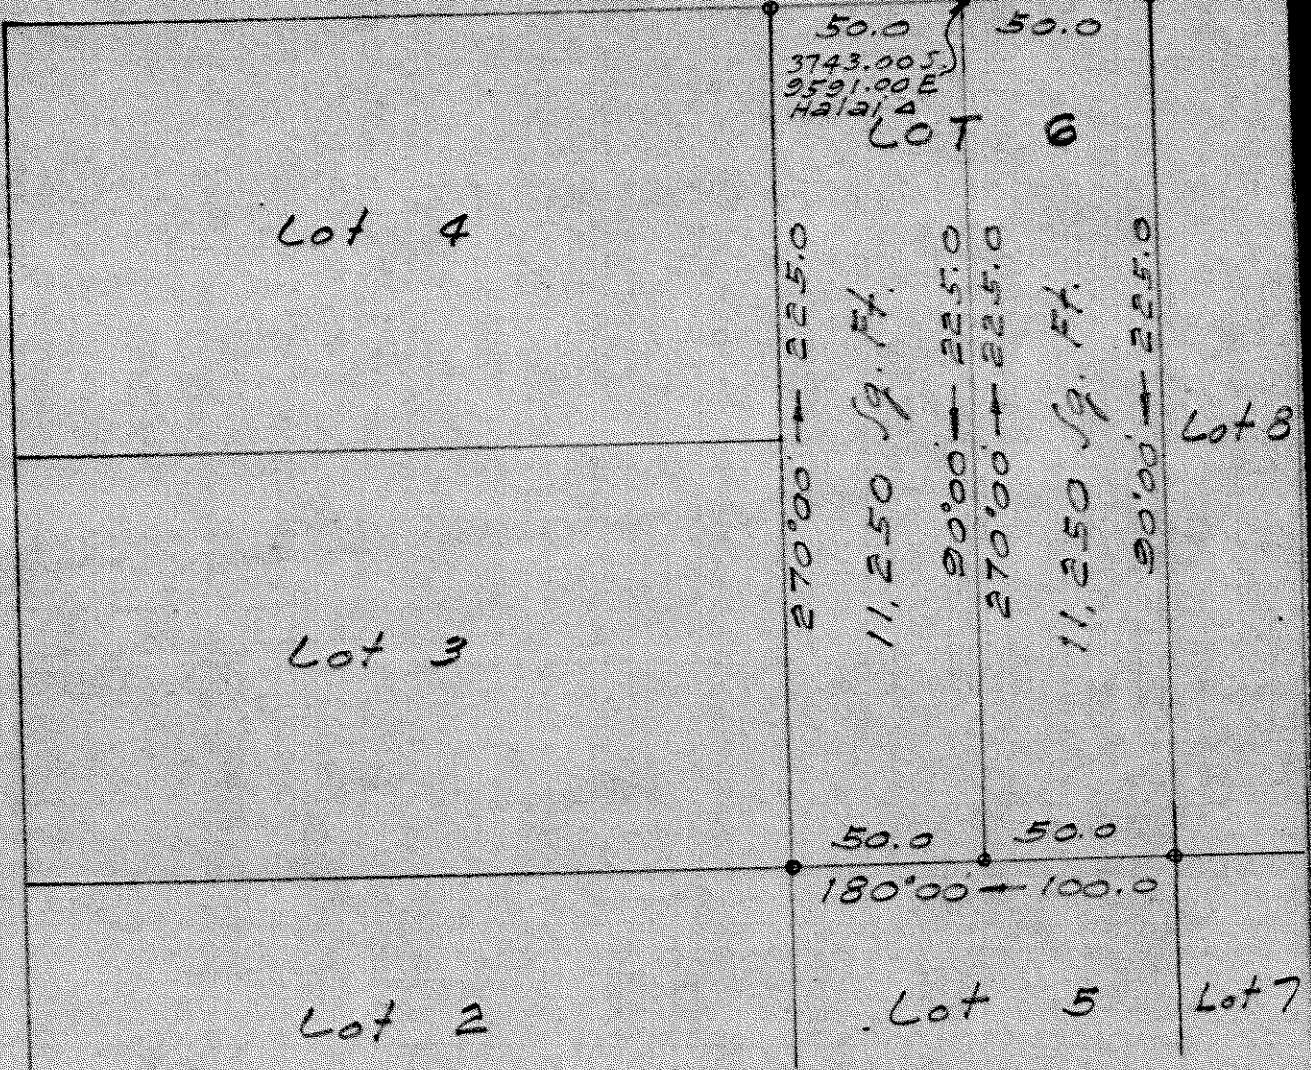 50.0
50.0
3743.00 S.
9591.00 E
Halai Δ
LOT 6
Lot 4
270°00' 225.0
11,250 Sq. Ft.
90°00' 225.0
270°00' 225.0
11,250 Sq. Ft.
90°00' 225.0
Lot 8
Lot 3
50.0
50.0
180°00' 100.0
Lot 2
Lot 5
Lot 7